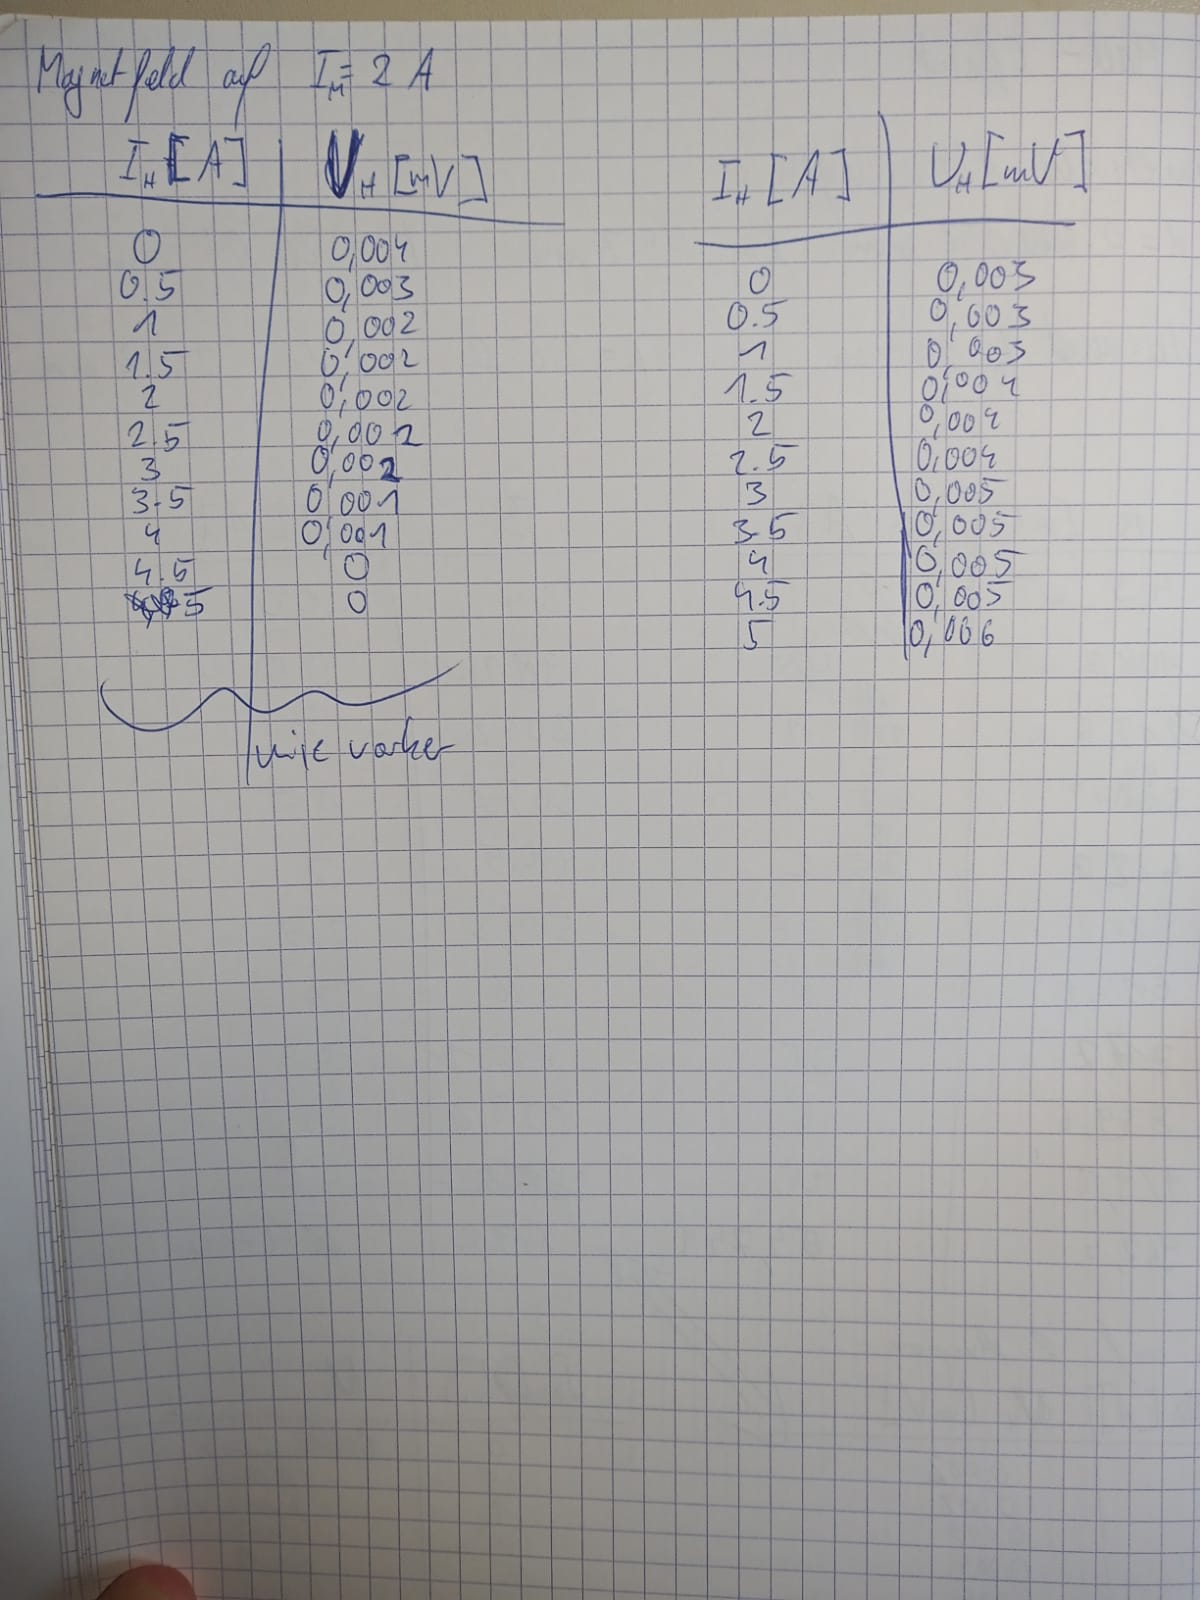 Magnetfeld auf I_M = 2 A
I_H [A] U_H [mV]
0 0,004
0.5 0,003
1 0,002
1.5 0,002
2 0,002
2.5 0,002
3 0,002
3.5 0,001
4 0,001
4.5 0
5 0
wie vorher
I_H [A] U_H [mV]
0 0,003
0.5 0,003
1 0,003
1.5 0,004
2 0,004
2.5 0,004
3 0,005
3.5 0,005
4 0,005
4.5 0,005
5 0,006